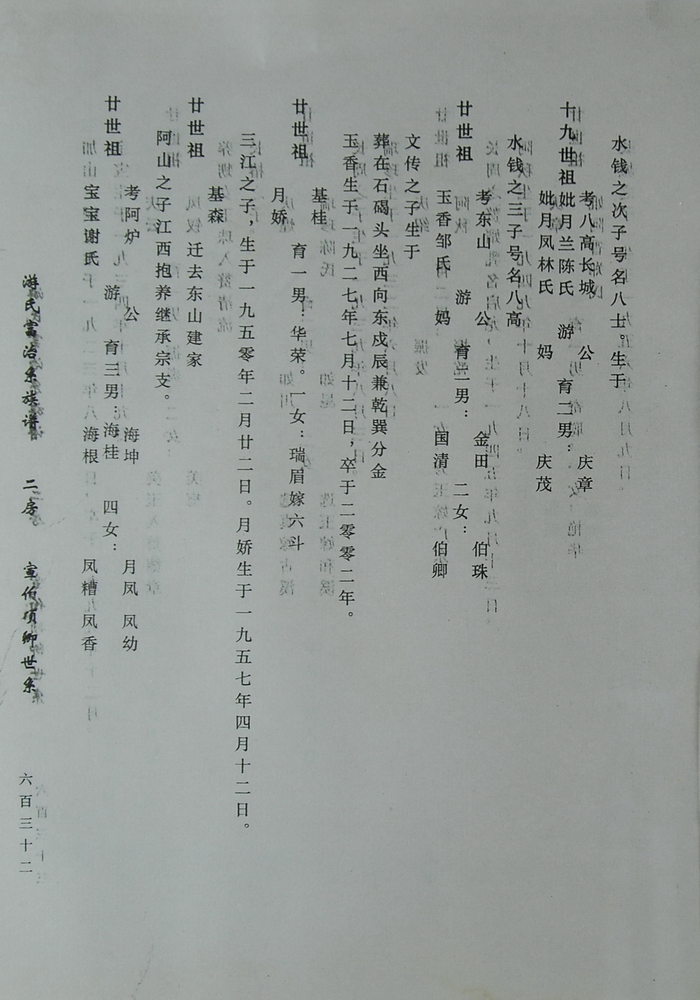 水钱之次子号名八士。生于
考八高长城 公 庆章
十九世祖 妣月兰陈氏 游 育二男：
妣月凤林氏 妈 庆茂
水钱之三子号名八高
考东山 公 金田 伯珠
廿世祖 游 育二男： 二女：
玉香邹氏 妈 国清 伯卿
文传之子生于
葬在石碣头坐西向东戍辰兼乾巽分金
玉香生于一九二七年七月十二日，卒于二零零二年。
基桂
廿世祖 育一男：华荣。一女：瑞眉嫁六斗
月娇
三江之子，生于一九五零年二月廿二日。月娇生于一九五七年四月十二日。
基森
廿世祖 迁去东山建家
阿山之子江西抱养继承宗支。
考阿炉 公 海坤 月凤 凤幼
廿世祖 游 育三男：海桂 四女：
宝宝谢氏 海根 凤糟 凤香
游氏富治系族谱 二房 宣伯顷卿世系 六百三十二